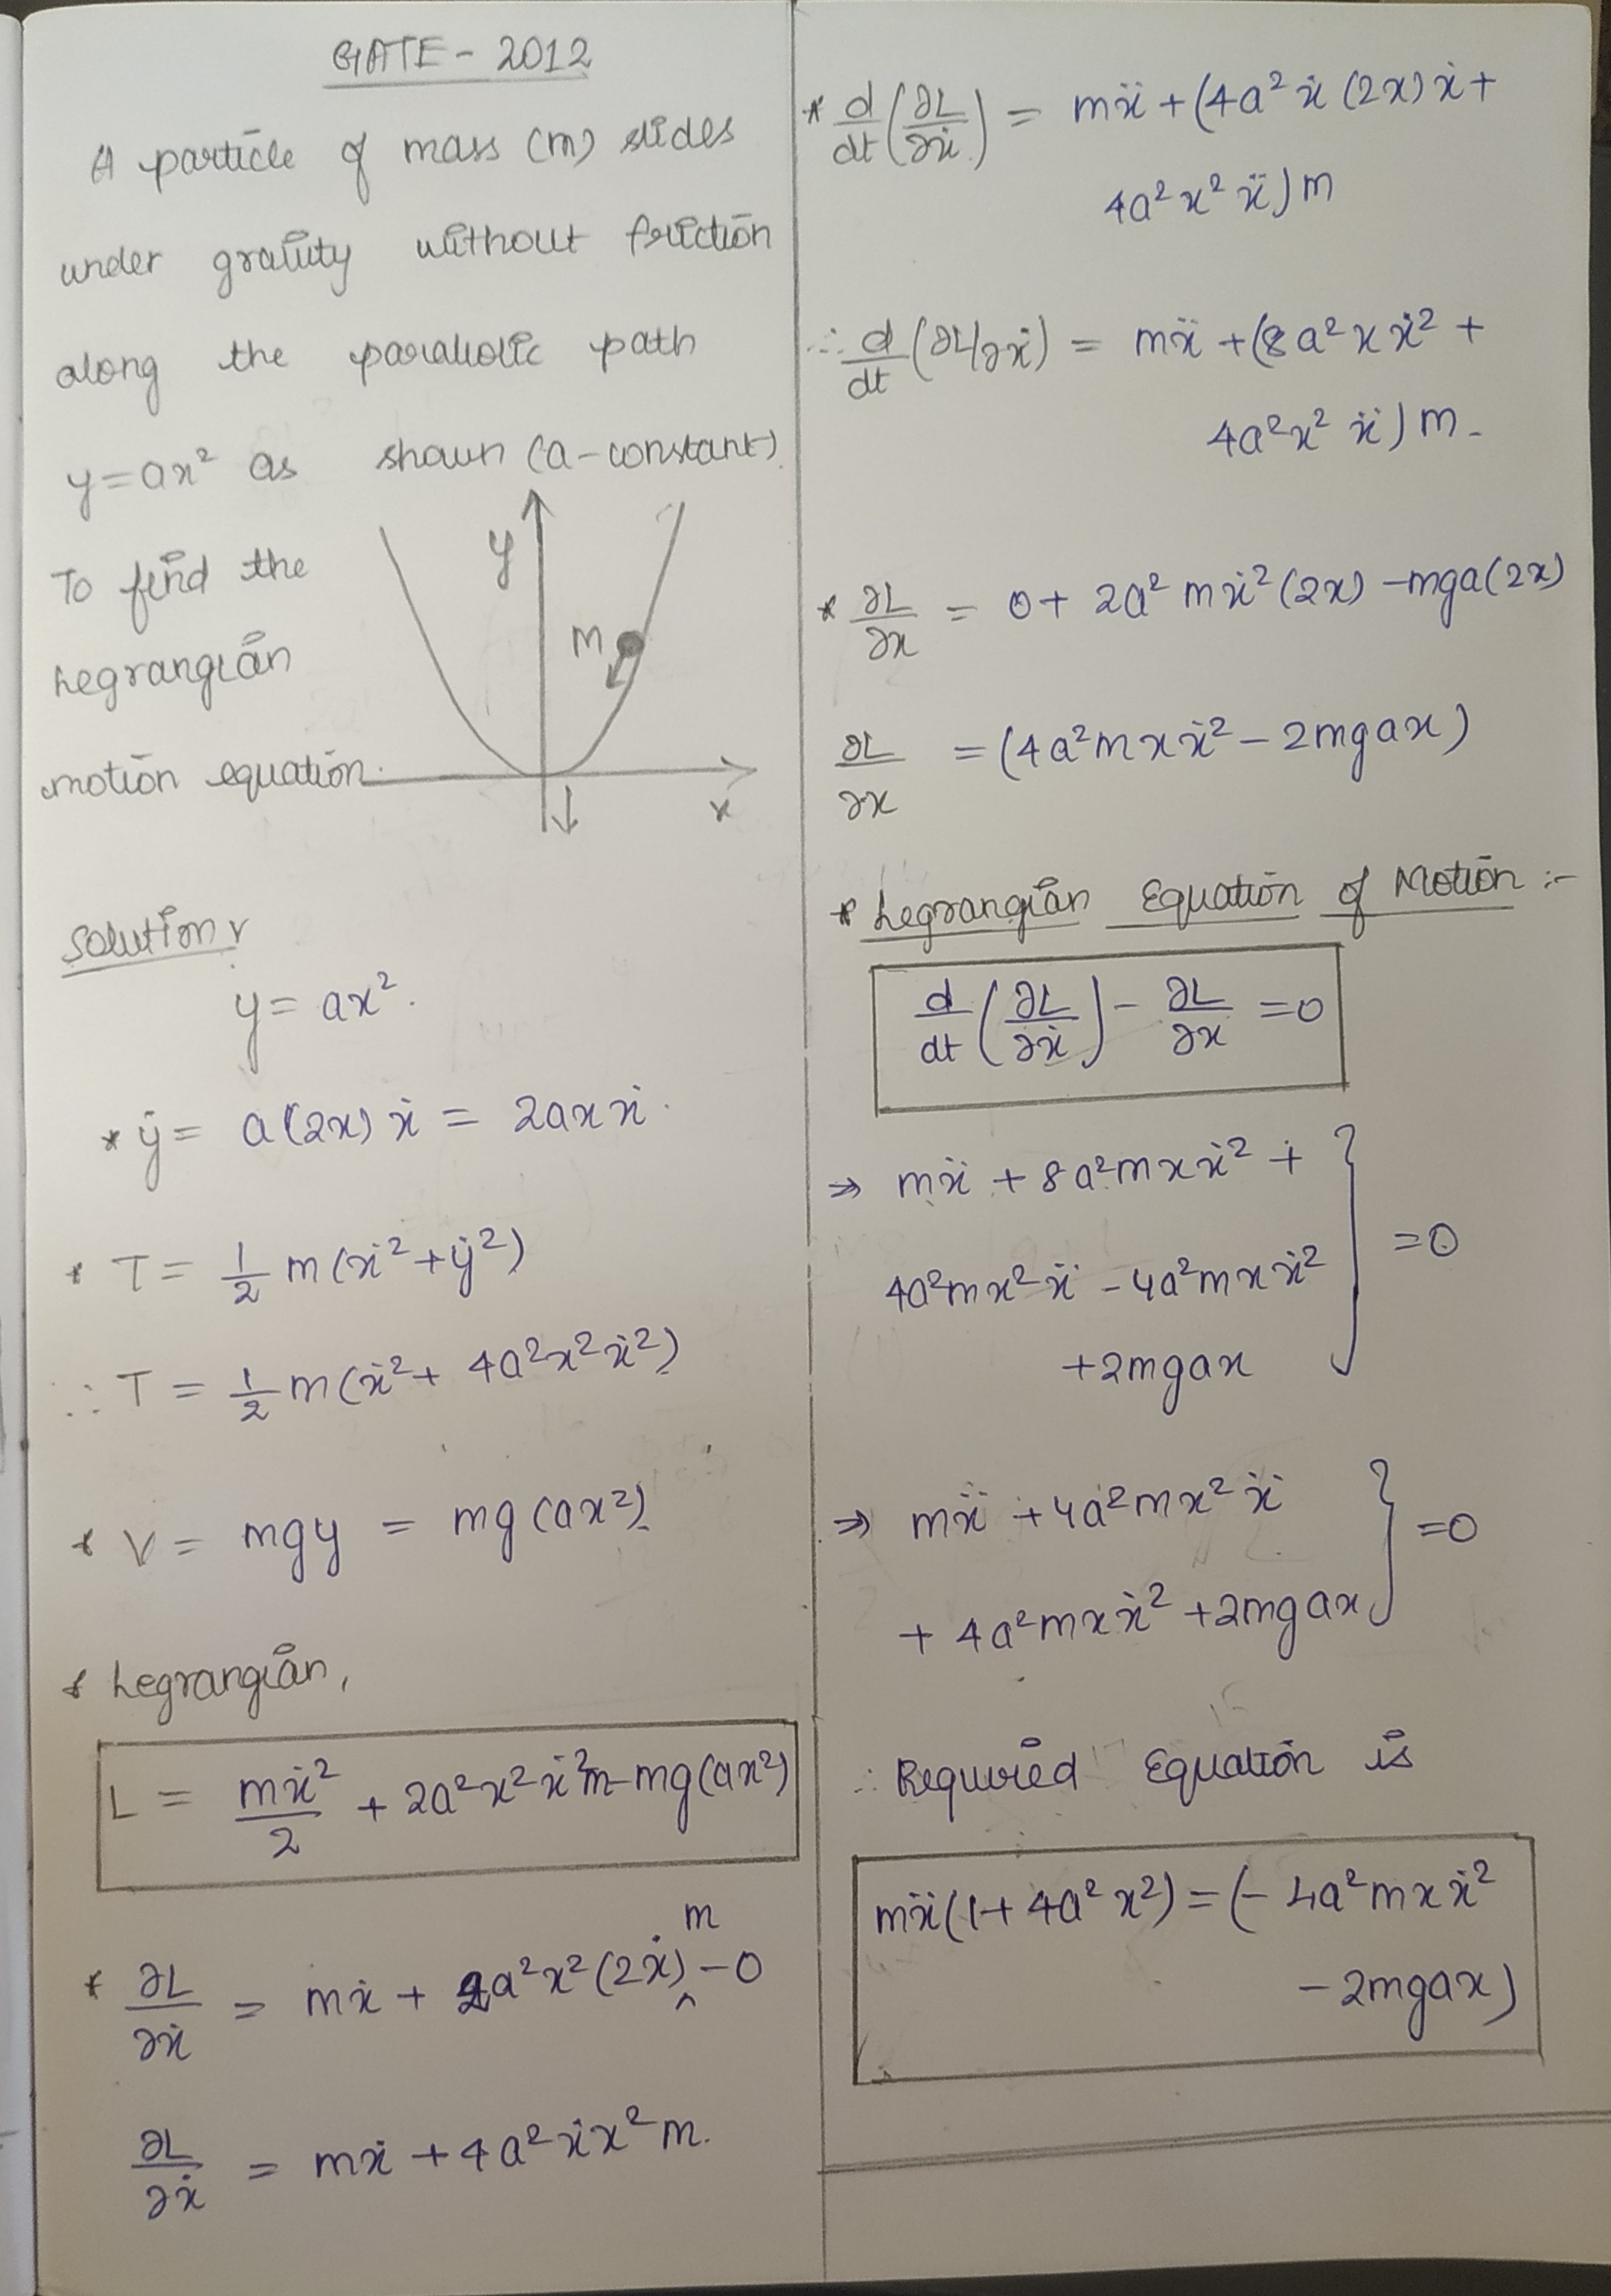 GATE - 2012
A particle of mass (m) slides
under gravity without friction
along the parabolic path
y = ax² as shown (a-constant)
To find the
Legrangian
motion equation.
y
m
x
Solution:
y = ax².
* ẏ = a(2x) ẋ = 2axẋ.
* T = 1/2 m(ẋ² + ẏ²)
∴ T = 1/2 m(ẋ² + 4a²x²ẋ²)
* V = mgy = mg(ax²)
* Legrangian,
L = mẋ²/2 + 2a²x²ẋ²m - mg(ax²)
* ∂L/∂ẋ = mẋ + 2a²x²(2ẋ) m - 0
∂L/∂ẋ = mẋ + 4a²ẋx²m.
* d/dt (∂L/∂ẋ) = mẍ + (4a²ẋ(2x)ẋ +
4a²x²ẍ)m
∴ d/dt (∂L/∂ẋ) = mẍ + (8a²xẋ² +
4a²x²ẍ)m.
* ∂L/∂x = 0 + 2a²mẋ²(2x) - mga(2x)
∂L/∂x = (4a²mxẋ² - 2mgax)
* Legrangian Equation of Motion :-
d/dt (∂L/∂ẋ) - ∂L/∂x = 0
⇒ mẍ + 8a²mxẋ² +
4a²mx²ẍ - 4a²mxẋ² } = 0
+2mgax
⇒ mẍ + 4a²mx²ẍ } = 0
+ 4a²mxẋ² + 2mgax
∴ Required Equation is
mẍ(1 + 4a²x²) = (- 4a²mxẋ²
- 2mgax)